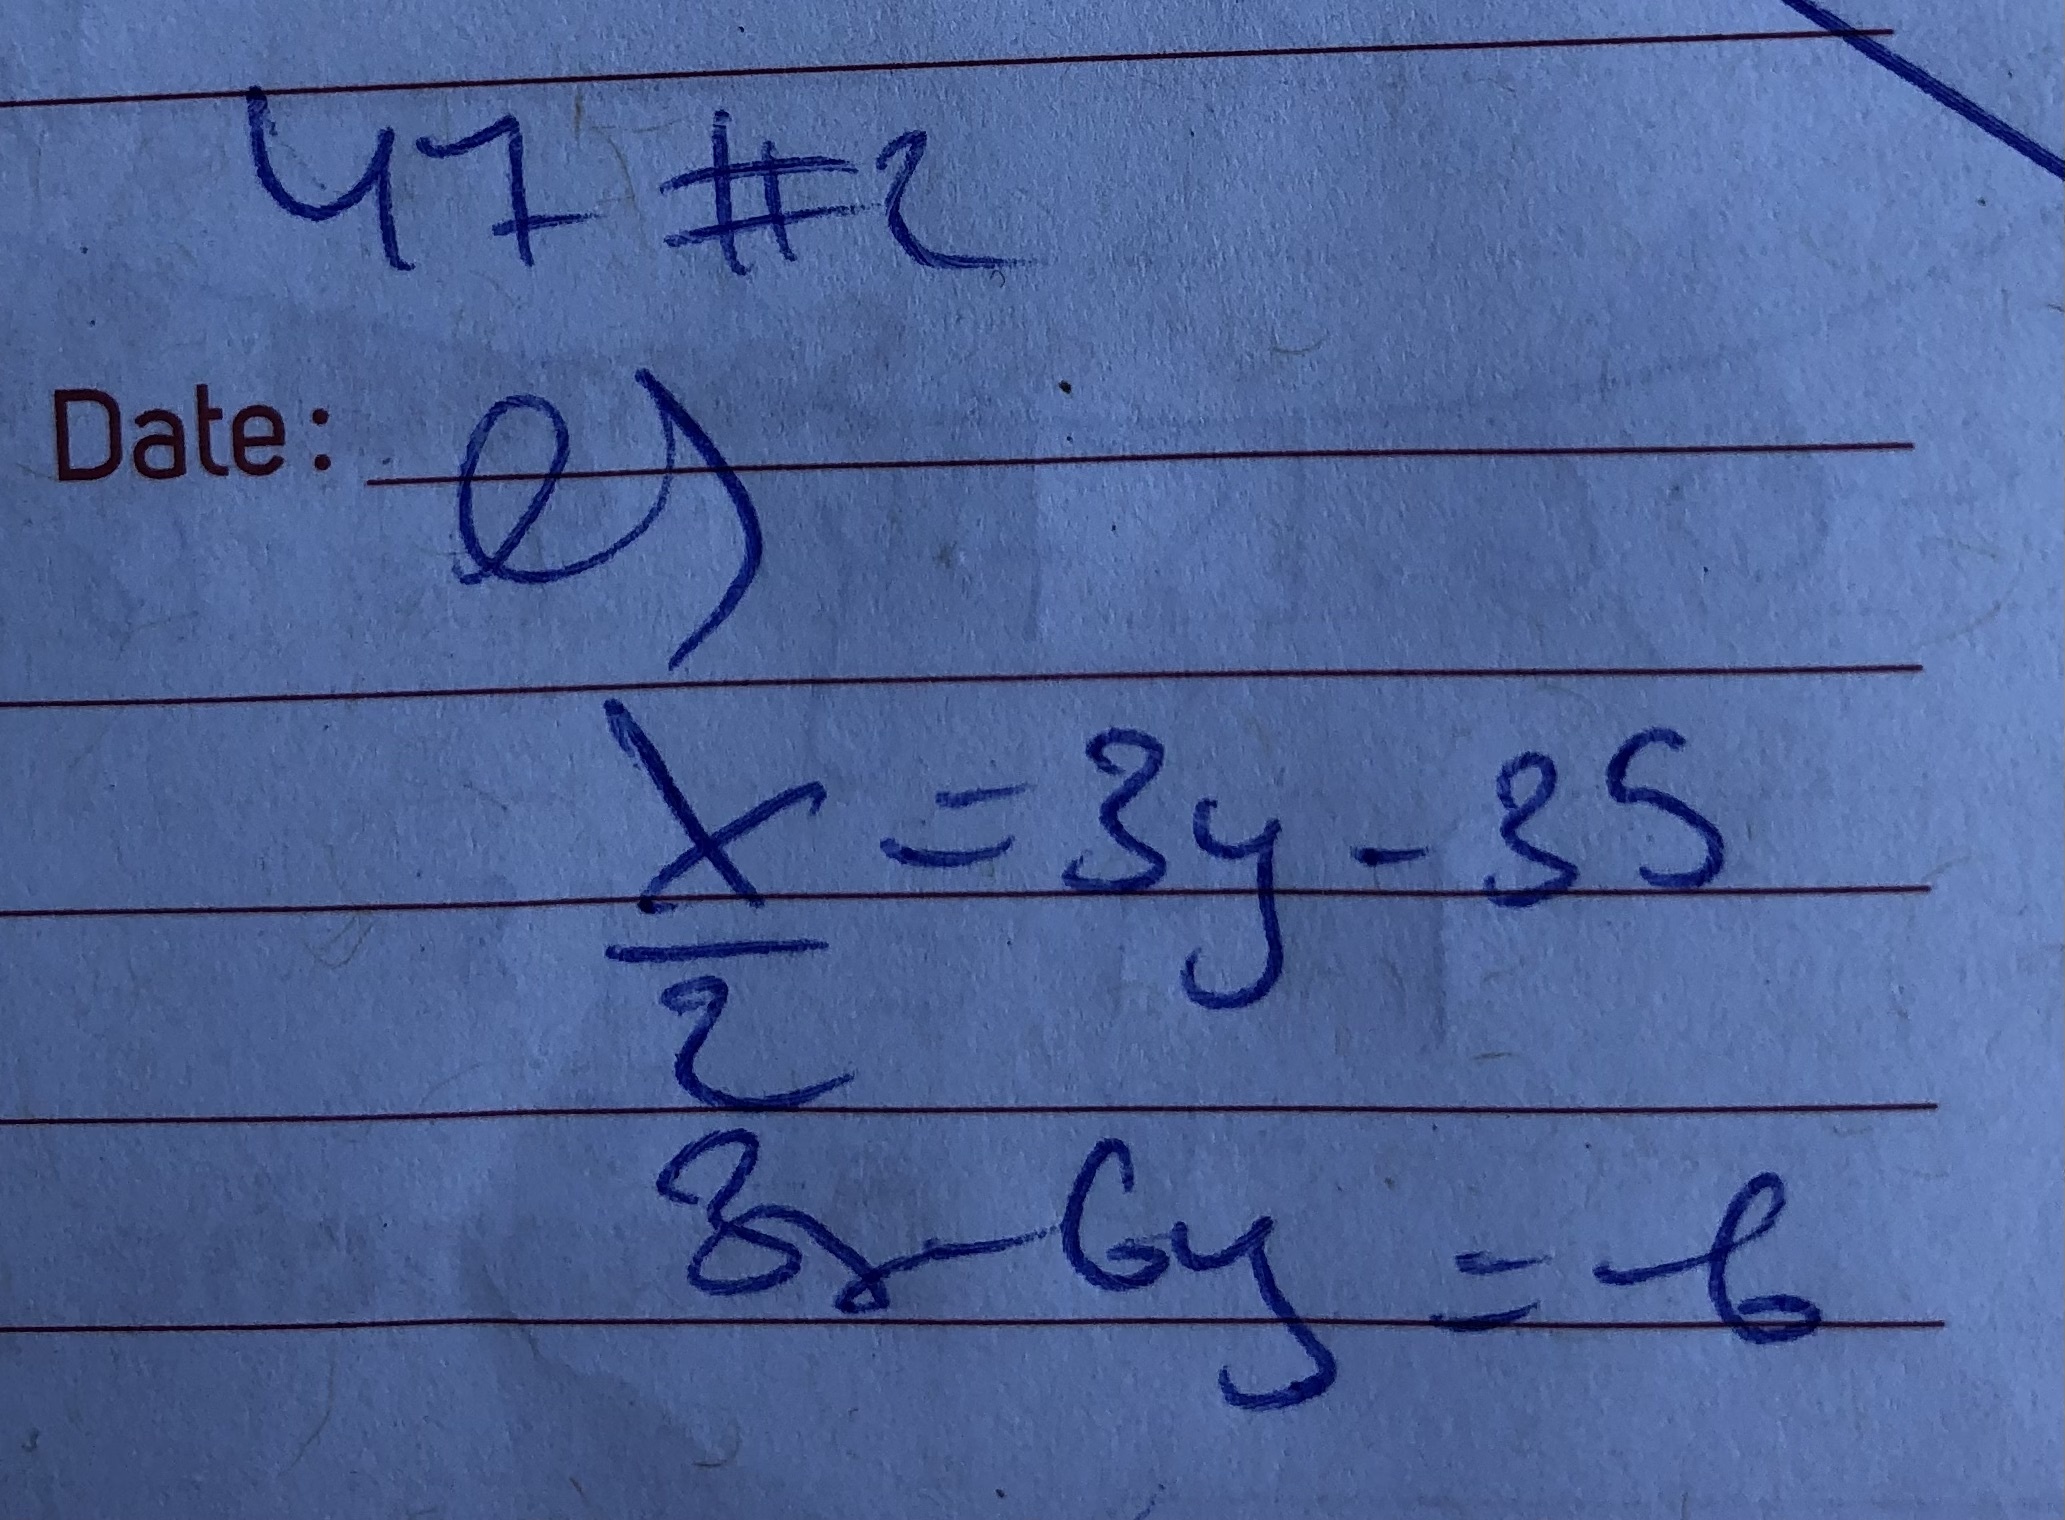 47 #2
Date: e)
x/2 = 3y - 35
3x - 6y = -6